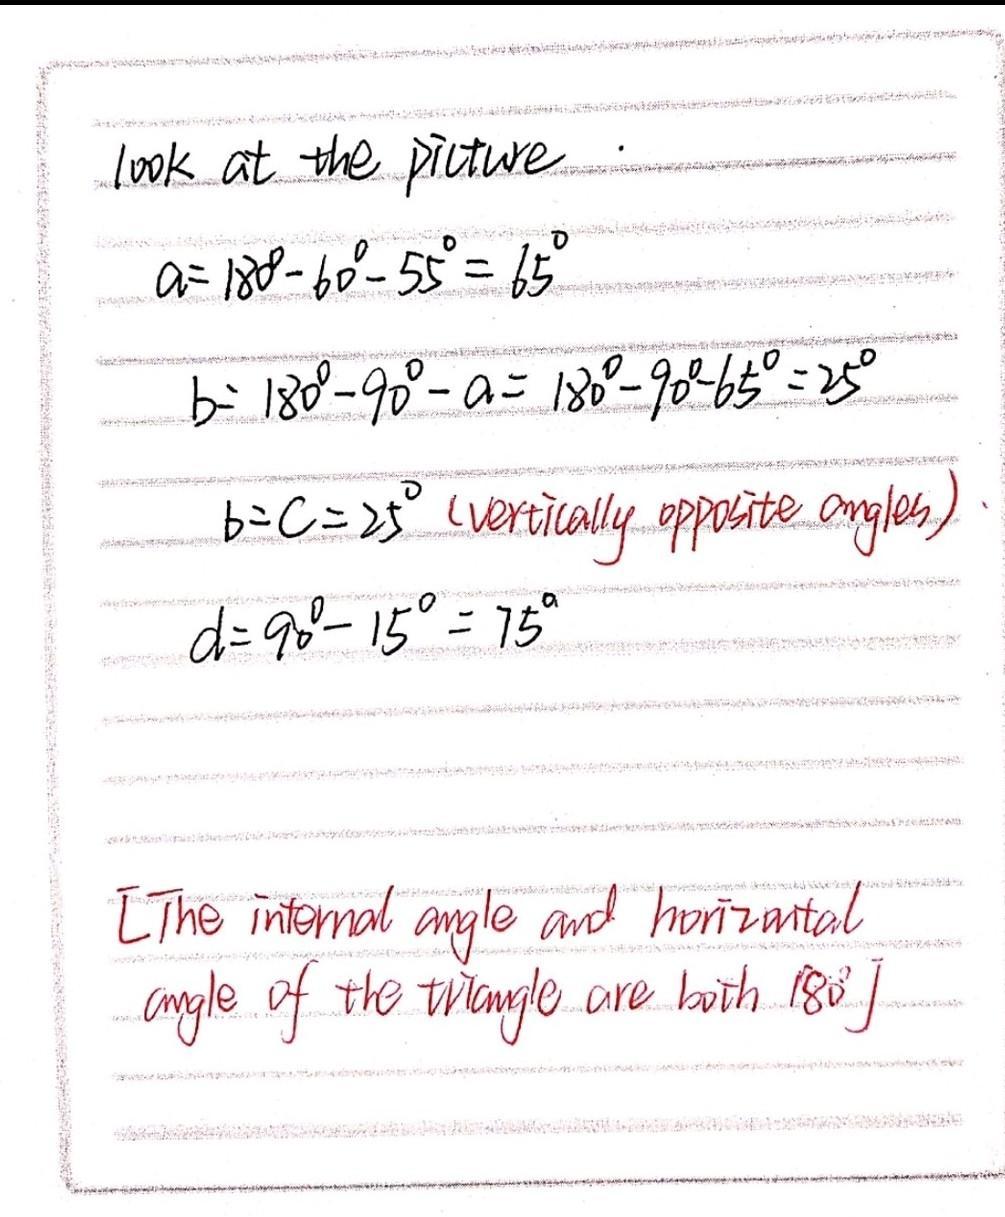 look at the picture.
a=180°-60°-55°=65°
b=180°-90°-a=180°-90°-65°=25°
b=c=25° (vertically opposite angles).
d=90°-15°=75°
[The internal angle and horizontal
angle of the triangle are both 180°]